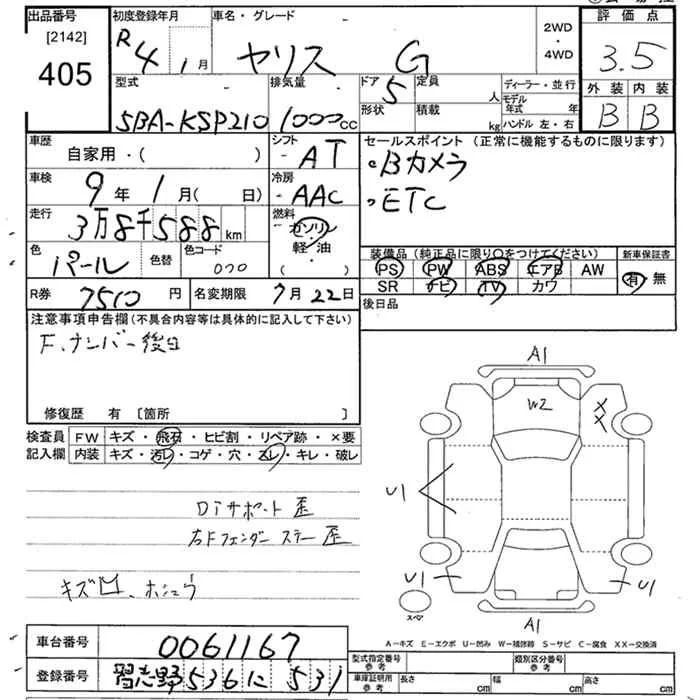 出品番号 初度登録年月 車名・グレード 2WD・4WD 評価点
[2142]
405
R4 1月 ヤリス G 3.5
型式 排気量 ドア 定員 人 ディーラー・並行 外装 内装
5BA-KSP210 1000cc 5 B B
形状 積載 kg モデル年式 年
ハンドル 左・右
車歴 自家用・( ) シフト AT
セールスポイント(正常に機能するものに限ります)
Bカメラ
ETC
車検 9年 1月( 日) 冷房 AAC
走行 3万8千588km 燃料 ガソリン・軽・油・( )
色 パール 色替 色コード 070
装備品(純正品に限り○をつけてください) 新車保証書
PS PW ABS エアB AW 有・無
SR ナビ TV カワ
R券 7510円 名変期限 7月22日 後日品
注意事項申告欄(不具合内容等は具体的に記入して下さい)
F.ナンバー後日
修復歴 有 [箇所 ]
検査員記入欄 FW キズ・飛石・ヒビ割・リペア跡・×要
内装 キズ・汚レ・コゲ・穴・スレ・キレ・破レ
Diサポート 歪
右Fフェンダーステー 歪
キズ凹、ホシュウ
A1
W2
××
U1
U1 U1
スペア
A1
A-キズ E-エクボ U-凹み W-補修跡 S-サビ C-腐食 XX-交換済
車台番号 0061167
登録番号 習志野 536 に 531
型式指定番号 参考 類別区分番号 参考
車庫証明用 参考 長さ cm 幅 cm 高さ cm